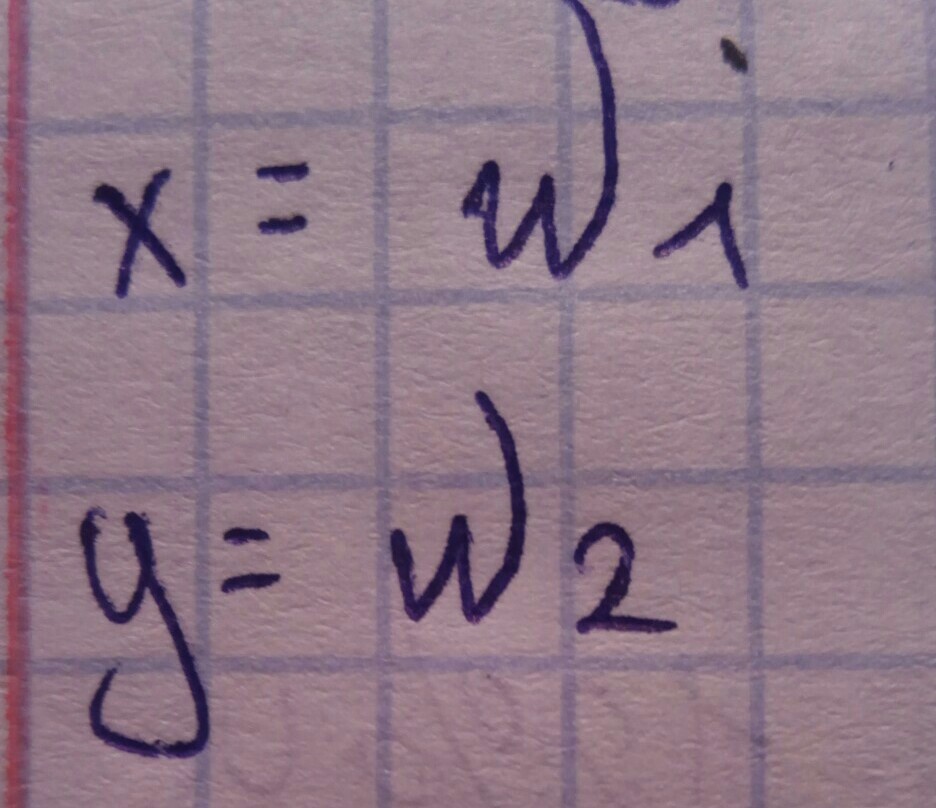 x = w1
y = w2